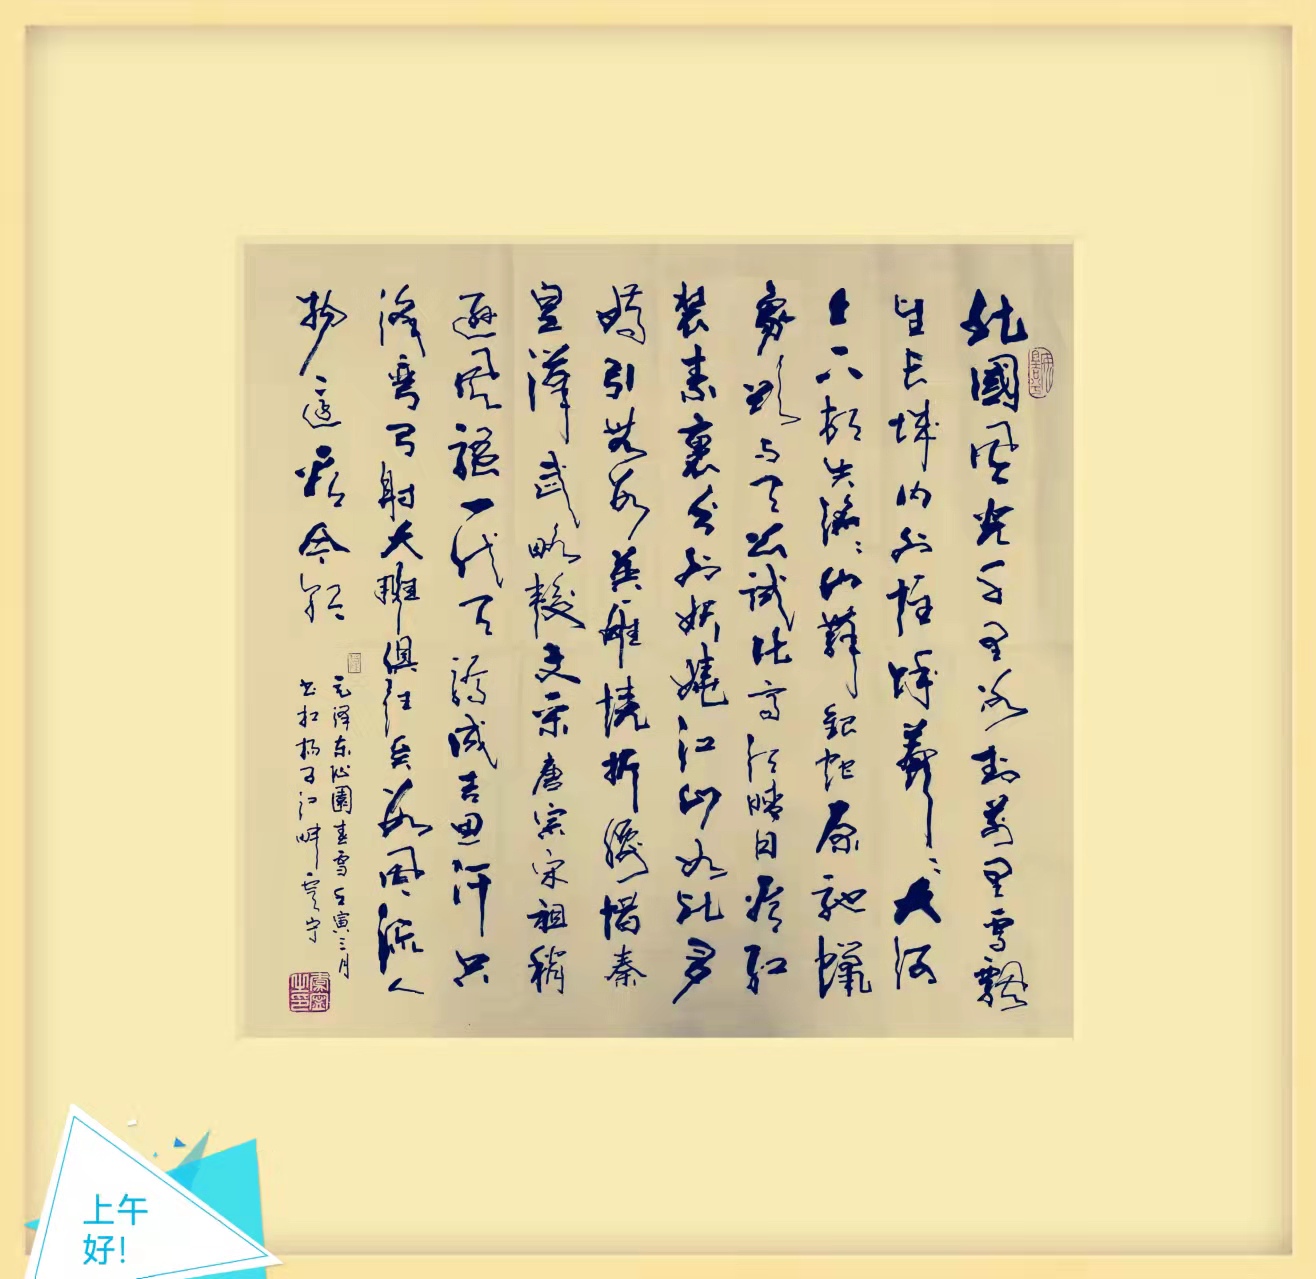 北國風光千里冰封萬里雪飄
望长城内外惟馀莽ミ大河
上下顿失滔ミ山舞銀蛇原馳蠟
象欲与天公試比高须晴日看红
装素裹分外妖娆江山如此多
嬌引無数英雄競折腰惜秦
皇漢武略輸文采唐宗宋祖稍
遜風騷一代天驕成吉思汗只
識彎弓射大雕俱往矣数風流人
物還看今朝
毛泽东沁園春雪壬寅三月
书於扬子江畔
上午
好!